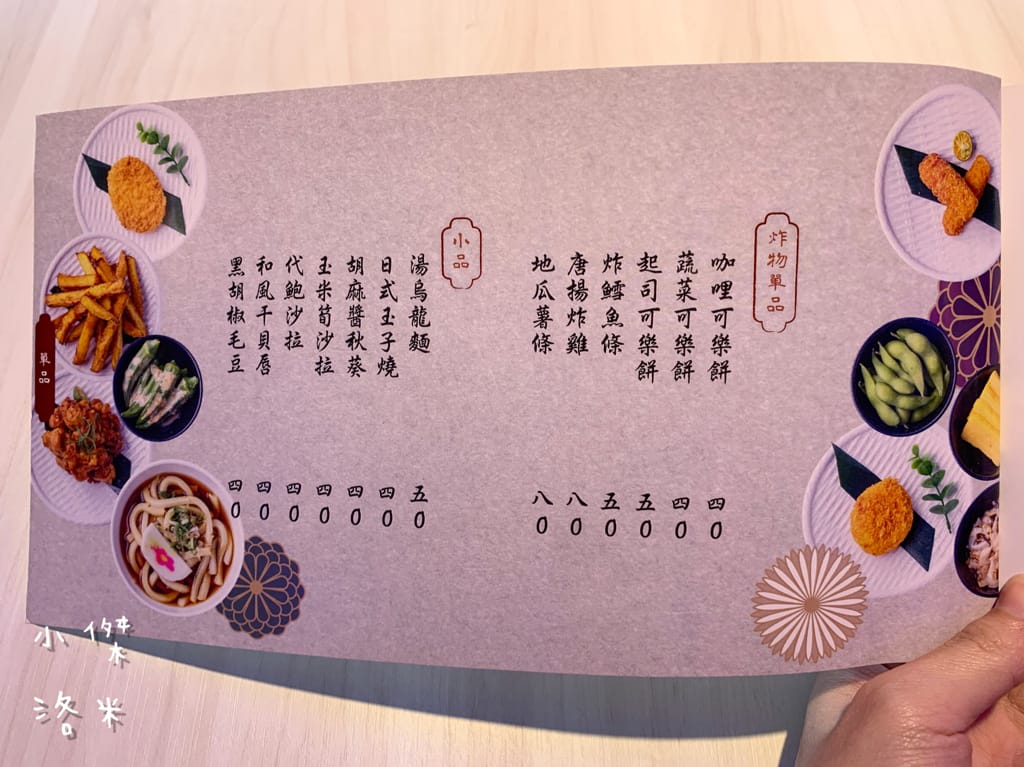 炸物單品
咖哩可樂餅 四0
蔬菜可樂餅 四0
起司可樂餅 五0
炸鱈魚條 五0
唐揚炸雞 八0
地瓜薯條 八0
小品
湯烏龍麵 五0
日式玉子燒 四0
胡麻醬秋葵 四0
玉米筍沙拉 四0
代鮑沙拉 四0
和風干貝唇 四0
黑胡椒毛豆 四0
單品
小傑
洛米